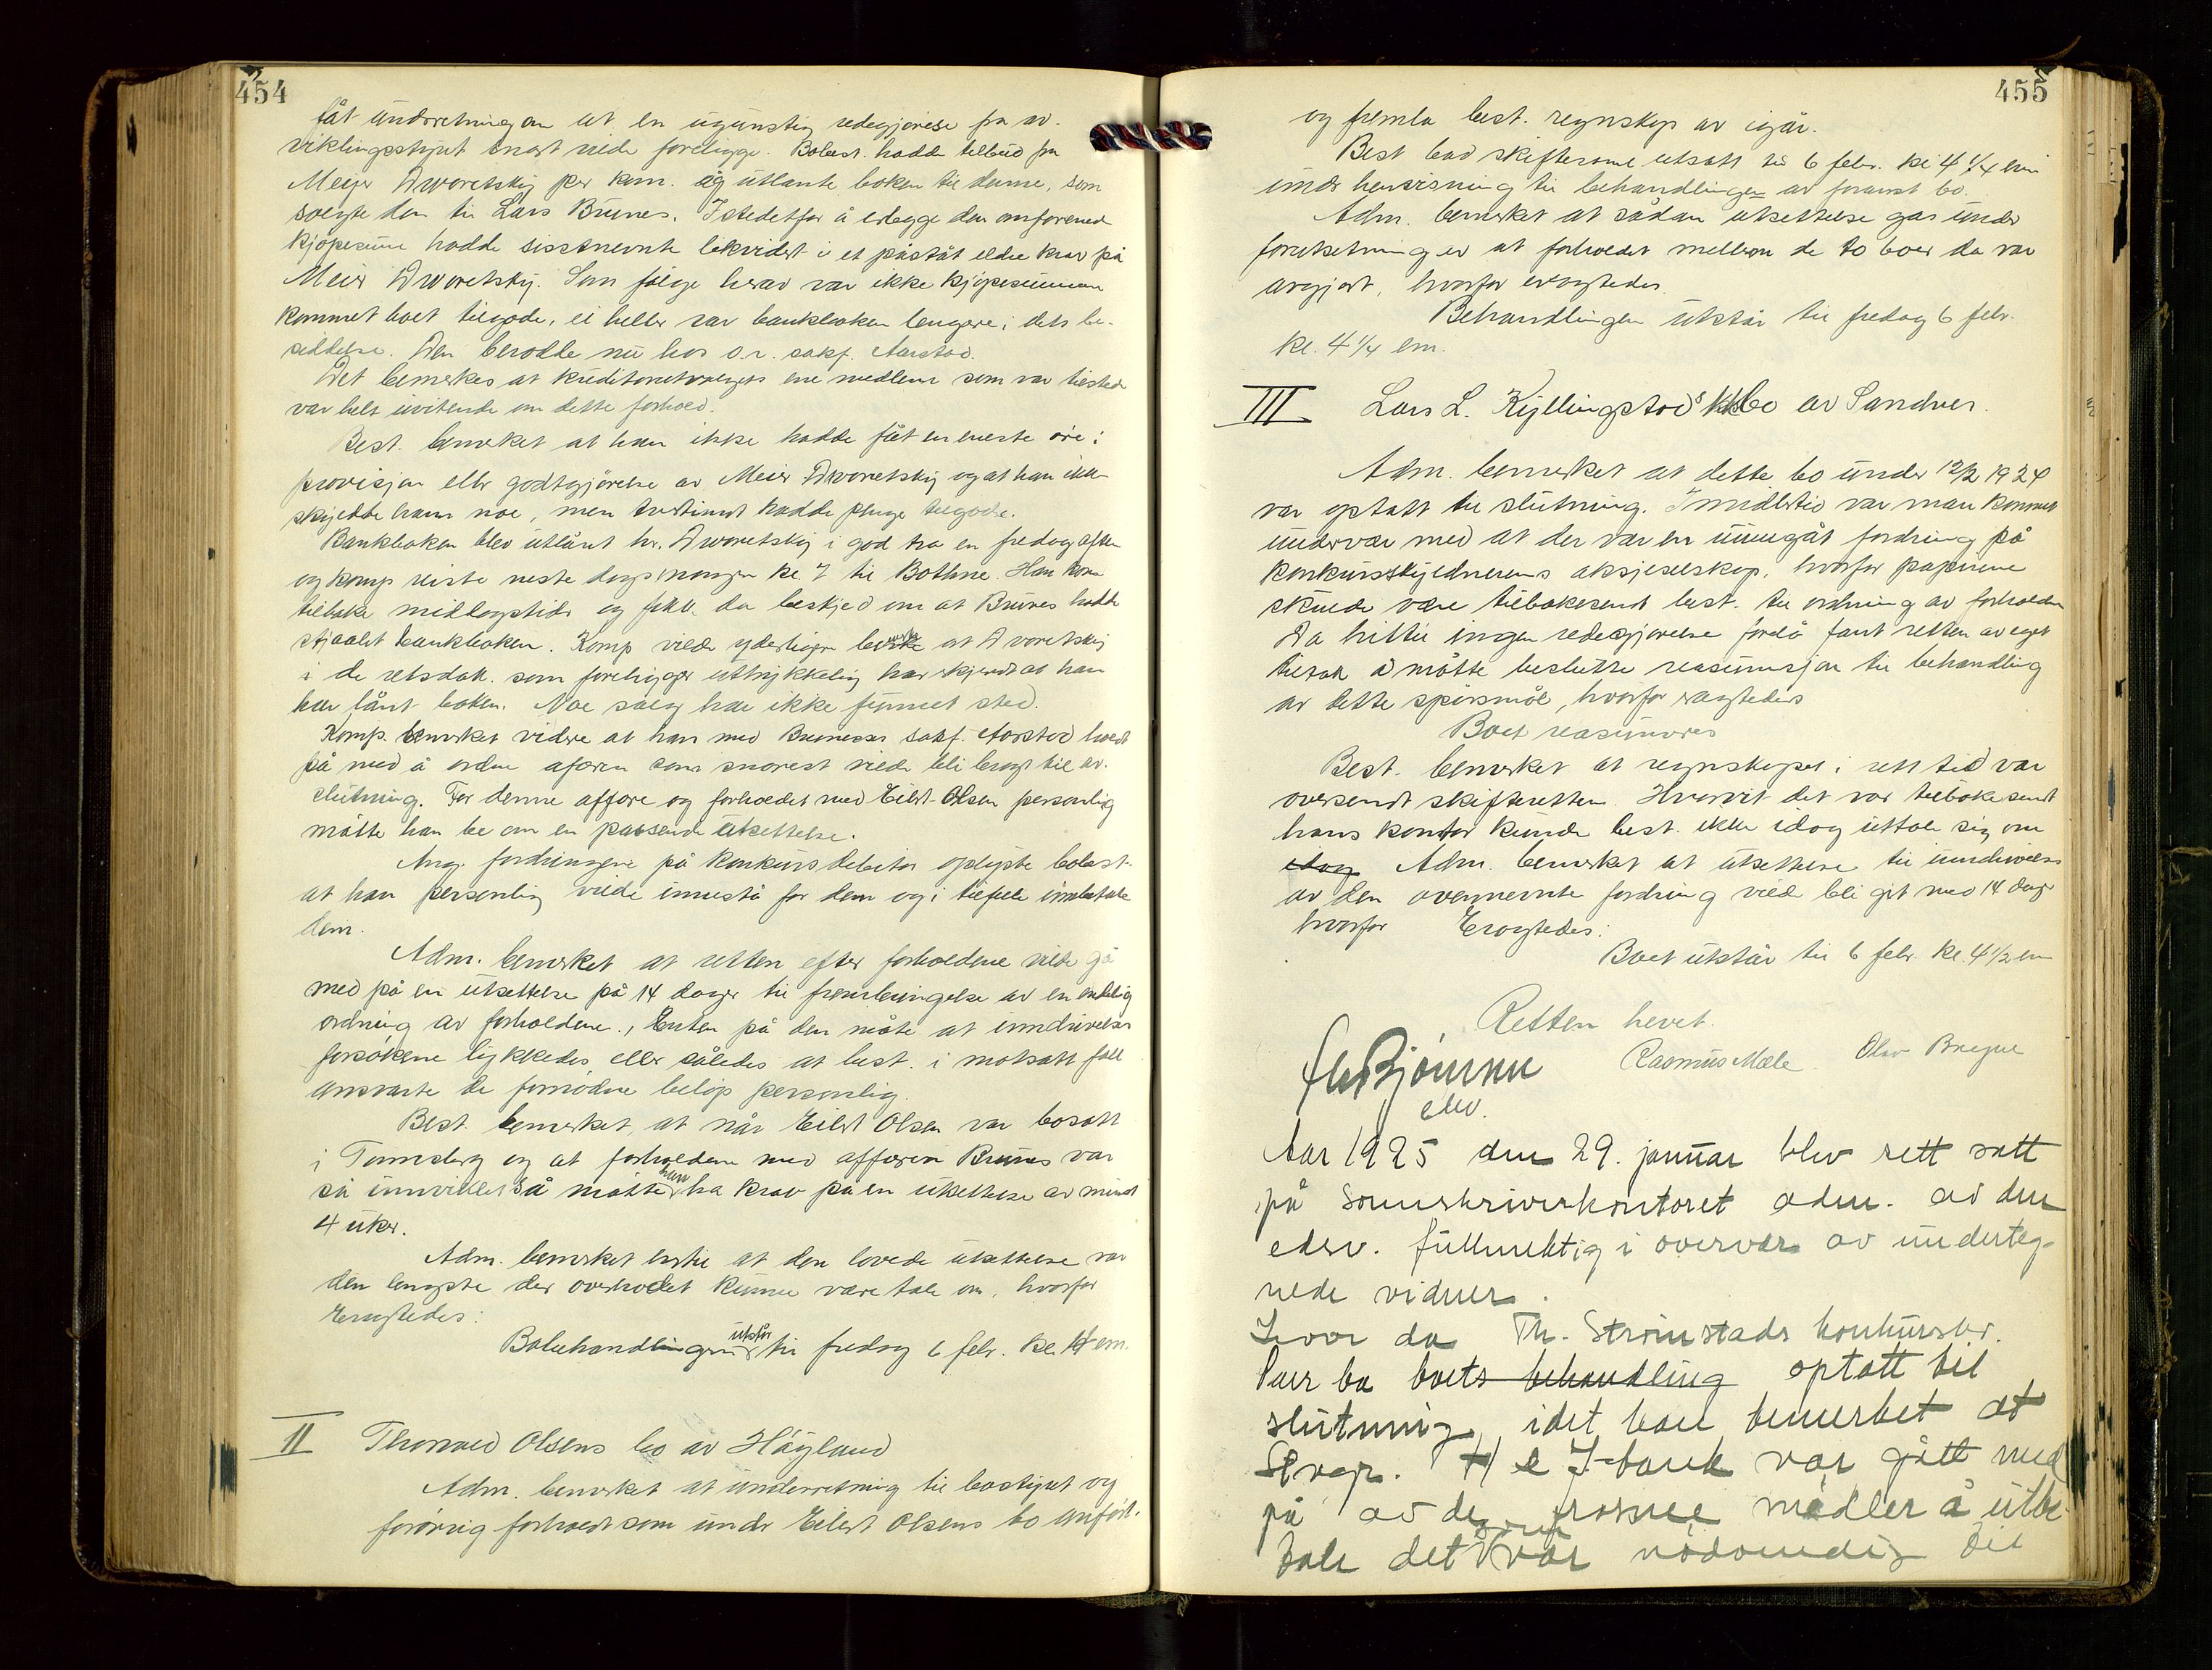 454
fåt underretningen at en ugunstig redegjørelse fra av-
viklingsstyret snart vilde foreligge. Bobest. hadde tilbud fra
Meijer Dworetsky per kom. og utlånte boken til denne, som
solgte den til Lars Brunes. Istedetfor å erlegge den omforenede
kjøpesum hadde sisstnevnte likvidert i et påståt eldre krav på
Meier Dworetsky. Som følge herav var ikke kjøpesummen
kommet boet tilgode, ei heller var bankboken lengere i dets be-
siddelse. Den berodde nu hos o.r. sakf. Aarstad.
Det bemerkes at kreditorutvalgets ene medlem som var tilstede
var helt uvitende om dette forhold.
Best. bemerket at han ikke hadde fåt en eneste øre i
provisjon eller godtgjørelse av Meier Dworetsky og at han ikke
skyldte ham noe, men tvertimot hadde penge tilgode.
Bankboken blev utlånt hr. Dworetsky i god tro en fredag aften
og komp reiste neste dags morgen kl. 7 til Bothne. Han kom
tilbake middagstider og fikk da beskjed om at Brunes hadde
stjaalet bankboken. Komp vilde yderligere bemerke at Dvoretsky
i de retsdok. som foreligger uttrykkelig har erkjendt at han
har lånt boken. Noe salg har ikke funnet sted.
Komp. bemerket videre at han med Brunesser sakf. Aarstad holdt
på med å ordne afæren som snarest vilde bli bragt til av-
slutning. For denne affære og forholdet med Eilert Olsen personlig
måtte han be om en passende utsettelse.
Ang. fordringene på konkursdebitor oplyste bobest.
at han personlig vilde innestå for dem og i tilfelle innbetale
dem.
Adm. bemerket at retten efter forholdene vilde gå
med på en utsettelse på 14 dager til frembringelse av en endelig
ordning av forholdene., Enten på den måte at inndrivelses
forsøkene lykkedes eller således at best. i motsatt fall
ansvarte de fornødne beløp personlig.
Best. bemerket, at når Eilert Olsen var bosatt
i Tønsberg og at forholdene med affæren Brunes var
så innviklet så måtte han ha krav på en utsettelse av minst
4 uker.
Adm. bemerket hertil at den lovede utsettelse var
den lengste der overhodet kunne være tale om, hvorfor
Eragtedes:
Bobehandlingen utstår til fredag 6 febr. kl. 4 em.
II Thorvald Olsens bo av Høyland
Adm. bemerket at underretning til bostyret og
forøvrig forholdt som under Eilert Olsens bo anført.
455
og fremla best. regnskap av igår.
Best bad skiftesaml utsatt til 6 febr. kl 4 1/4 em
under henvisning til behandlingen av foranst bo.
Adm. bemerket at sådan utsettelse gis under
forutsetning av at forholdet mellem de to boer da var
avgjort, hvorfor eragtedes.
Behandlingen utstår til fredag 6 febr.
kl. 4 1/4 em.
III Lars L. Kyllingstad's kksbo av Sandnes.
Adm. bemerket at dette bo under 12/2 1924
var optatt til slutning. Imidlertid var man kommet
undervær med at der var en unngåt fordring på
konkursskyldnerens aksjeselskap, hvorfor papirene
skulde være tilbakesendt best. til ordning av forholdet.
Da hittil ingen redegjørelse forelå fant retten av eget
tiltak å måtte beslutte reasumsjon til behandling
av dette spørsmål, hvorfor eragtedes
Boet reasumeres
Best. bemerket at regnskapet i rett tid var
oversendt skifteretten. Hvorvit det var tilbakesendt
hans kontor kunde best. ikke idag uttale sig om
idag Adm. bemerket at utsettelse til inndrivelse
av den ovennevnte fordring vilde bli git med 14 dage
hvorfor Eragtedes:
Boet utstår til 6 febr. kl. 4 1/2 em
Retten hevet.
Bjørnnes Rasmus Mæle. Olav Bregne
edsv.
Aar 1925 den 29. januar blev rett satt
på Sorenskriverkontoret adm. av den
edsv. fullmektig i overvær av underteg-
nede vidner.
Hvor da Th. Strømstads konkursbr.
Paer ba boets behandling optatt til
slutning, idet han bemerket at
Stvgr. H & I-bank var gått med
på av de midler å utbe-
tale det som var nødvendig til